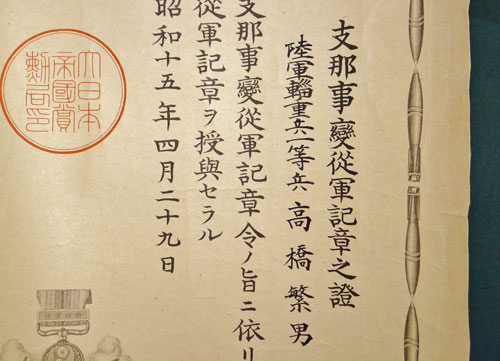 支那事變從軍記章之證
陸軍輜重兵一等兵 高橋繁男
支那事變從軍記章令ノ旨ニ依リ
從軍記章ヲ授與セラル
昭和十五年四月二十九日
大日本
帝國賞
勳局印